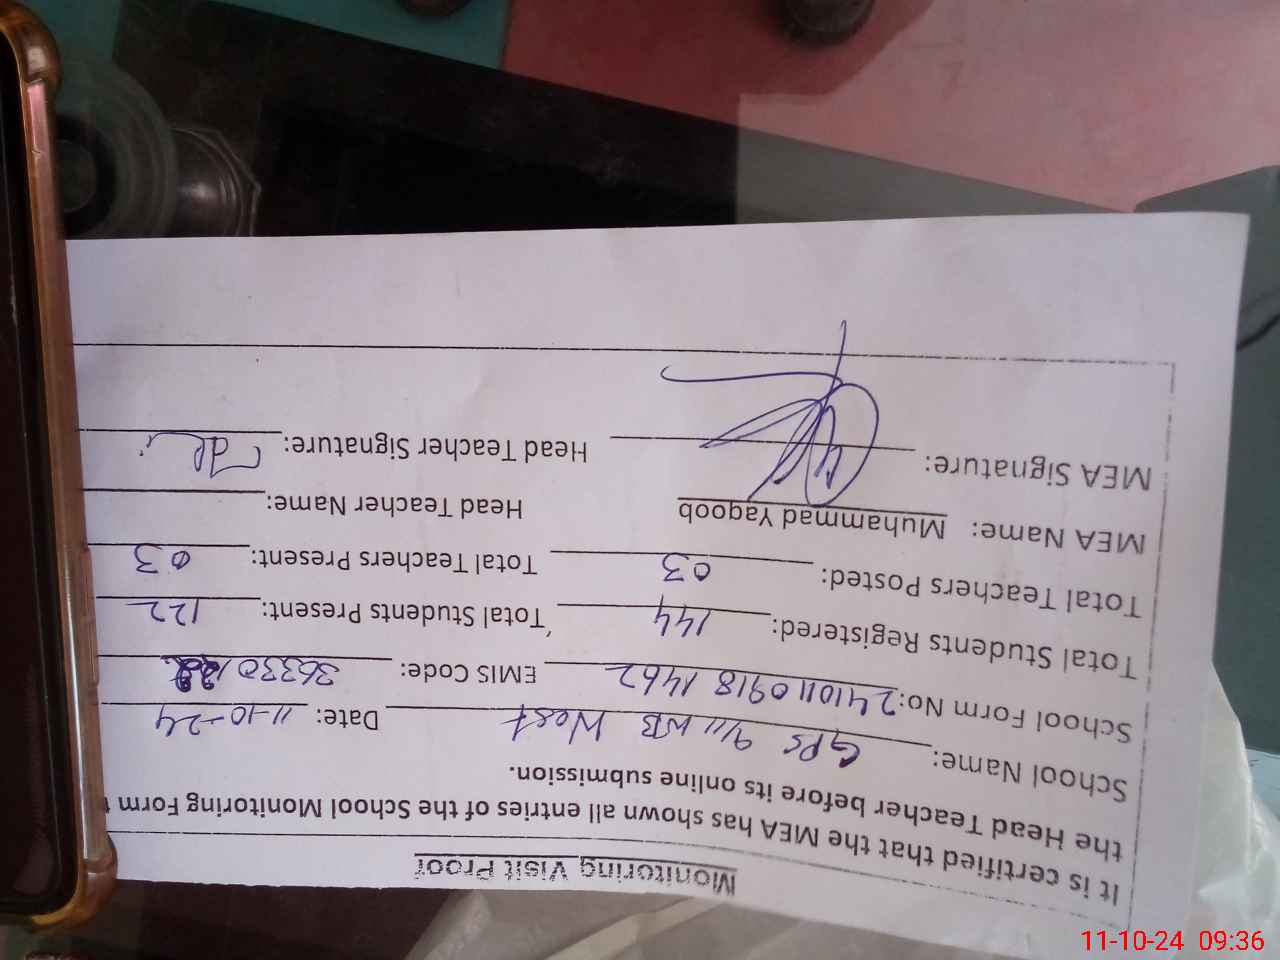 Monitoring Visit Proof
It is certified that the MEA has shown all entries of the School Monitoring Form
the Head Teacher before its online submission.
School Name: GPS 9/11 WB West Date: 11-10-24
School Form No: 241011 0918 1462 EMIS Code: 36330
Total Students Registered: 144 Total Students Present: 122
Total Teachers Posted: 03 Total Teachers Present: 03
MEA Name: Muhammad Yaqoob Head Teacher Name:
MEA Signature: Head Teacher Signature:
11-10-24 09:36